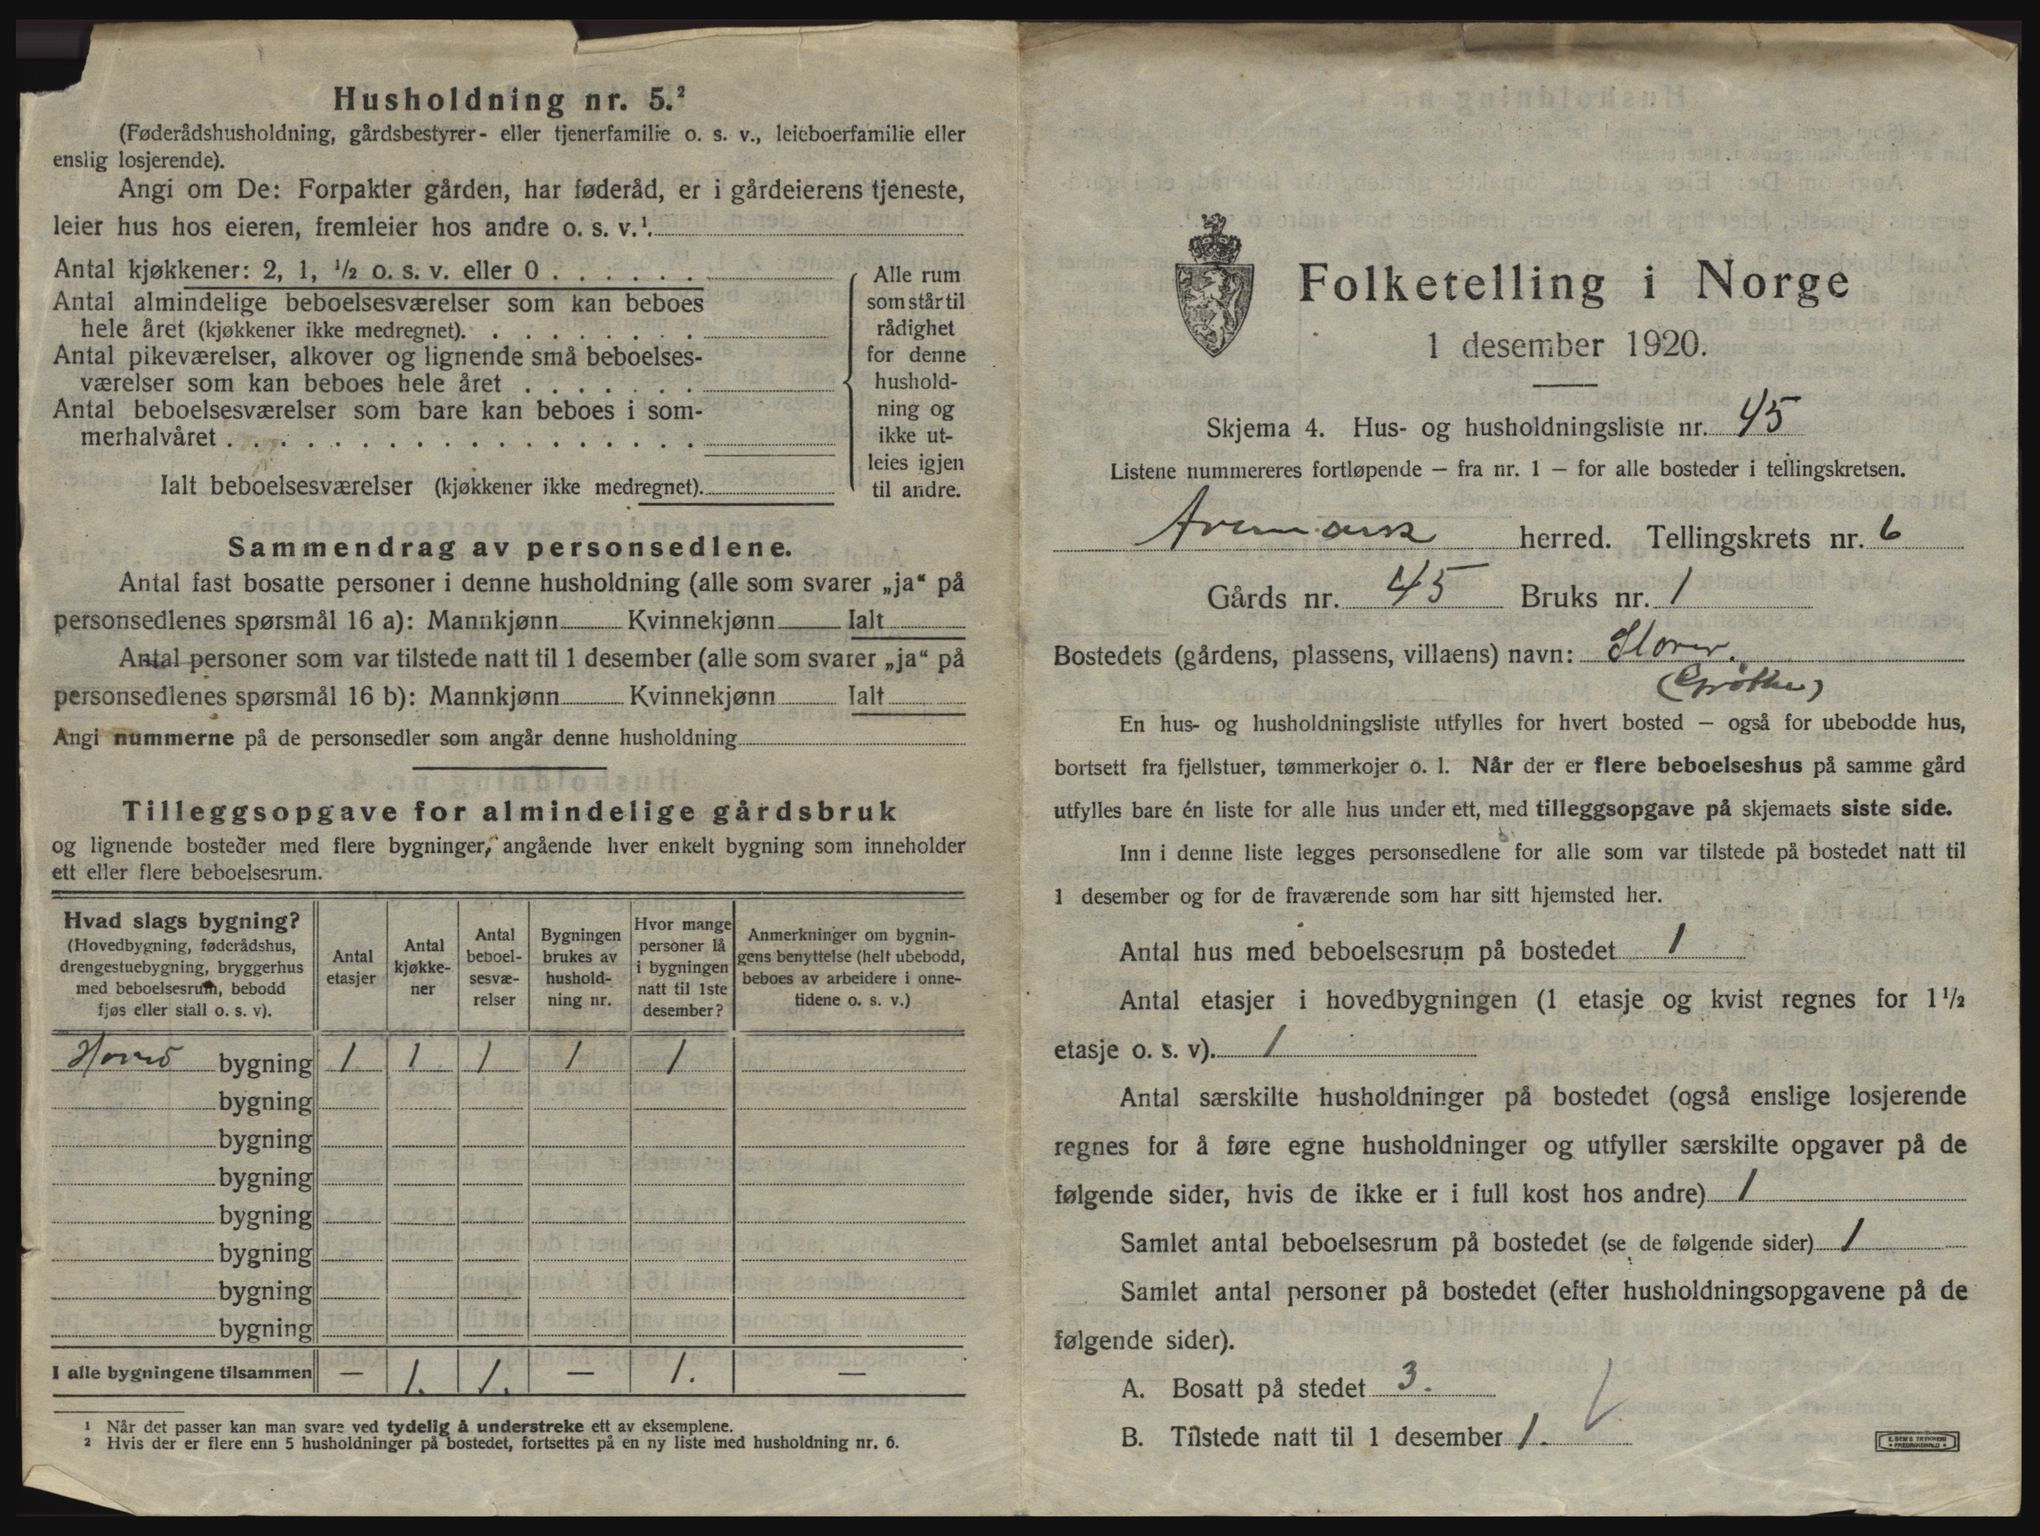 Husholdning nr. 5.²
(Føderådshusholdning, gårdsbestyrer- eller tjenerfamilie o. s. v., leieboerfamilie eller
enslig losjerende).
Angi om De: Forpakter gården, har føderåd, er i gårdeierens tjeneste,
leier hus hos eieren, fremleier hos andre o. s. v.¹.
Antal kjøkkener: 2, 1, ½ o. s. v. eller 0 . . . . . .
Antal almindelige beboelsesværelser som kan beboes
hele året (kjøkkener ikke medregnet). . . . . . . . .
Antal pikeværelser, alkover og lignende små beboelses-
værelser som kan beboes hele året . . . . . . .
Antal beboelsesværelser som bare kan beboes i som-
merhalvåret . . . . . . . . . . . . . . . . . .
Ialt beboelsesværelser (kjøkkener ikke medregnet).
Alle rum
som står til
rådighet
for denne
hushold-
ning og
ikke ut-
leies igjen
til andre.
Sammendrag av personsedlene.
Antal fast bosatte personer i denne husholdning (alle som svarer „ja“ på
personsedlenes spørsmål 16 a): Mannkjønn Kvinnekjønn Ialt
Antal personer som var tilstede natt til 1 desember (alle som svarer „ja“ på
personsedlenes spørsmål 16 b): Mannkjønn Kvinnekjønn Ialt
Angi nummerne på de personsedler som angår denne husholdning
Tilleggsopgave for almindelige gårdsbruk
og lignende bosteder med flere bygninger, angående hver enkelt bygning som inneholder
ett eller flere beboelsesrum.
Hvad slags bygning?
(Hovedbygning, føderådshus,
drengestuebygning, bryggerhus
med beboelsesrum, bebodd
fjøs eller stall o. s. v).
Antal
etasjer
Antal
kjøkke-
ner
Antal
beboel-
sesvæ-
relser
Bygningen
brukes av
hushold-
ning nr.
Hvor mange
personer lå
i bygningen
natt til 1ste
desember?
Anmerkninger om bygnin-
gens benyttelse (helt ubebodd,
beboes av arbeidere i onne-
tidene o. s. v.)
Hoved bygning 1. 1. 1 1 1
bygning
bygning
bygning
bygning
bygning
bygning
bygning
I alle bygningene tilsammen — 1. 1. — 1. —
¹ Når det passer kan man svare ved tydelig å understreke ett av eksemplene.
² Hvis der er flere enn 5 husholdninger på bostedet, fortsettes på en ny liste med husholdning nr. 6.
Folketelling i Norge
1 desember 1920.
Skjema 4. Hus- og husholdningsliste nr. 45
Listene nummereres fortløpende — fra nr. 1 — for alle bosteder i tellingskretsen.
Aremark herred. Tellingskrets nr. 6
Gårds nr. 45 Bruks nr. 1
Bostedets (gårdens, plassens, villaens) navn:
En hus- og husholdningsliste utfylles for hvert bosted — også for ubebodde hus,
bortsett fra fjellstuer, tømmerkojer o. l. Når der er flere beboelseshus på samme gård
utfylles bare én liste for alle hus under ett, med tilleggsopgave på skjemaets siste side.
Inn i denne liste legges personsedlene for alle som var tilstede på bostedet natt til
1 desember og for de fraværende som har sitt hjemsted her.
Antal hus med beboelsesrum på bostedet 1
Antal etasjer i hovedbygningen (1 etasje og kvist regnes for 1½
etasje o. s. v). 1
Antal særskilte husholdninger på bostedet (også enslige losjerende
regnes for å føre egne husholdninger og utfyller særskilte opgaver på de
følgende sider, hvis de ikke er i full kost hos andre) 1
Samlet antal beboelsesrum på bostedet (se de følgende sider) 1
Samlet antal personer på bostedet (efter husholdningsopgavene på de
følgende sider).
A. Bosatt på stedet 3.
B. Tilstede natt til 1 desember 1.